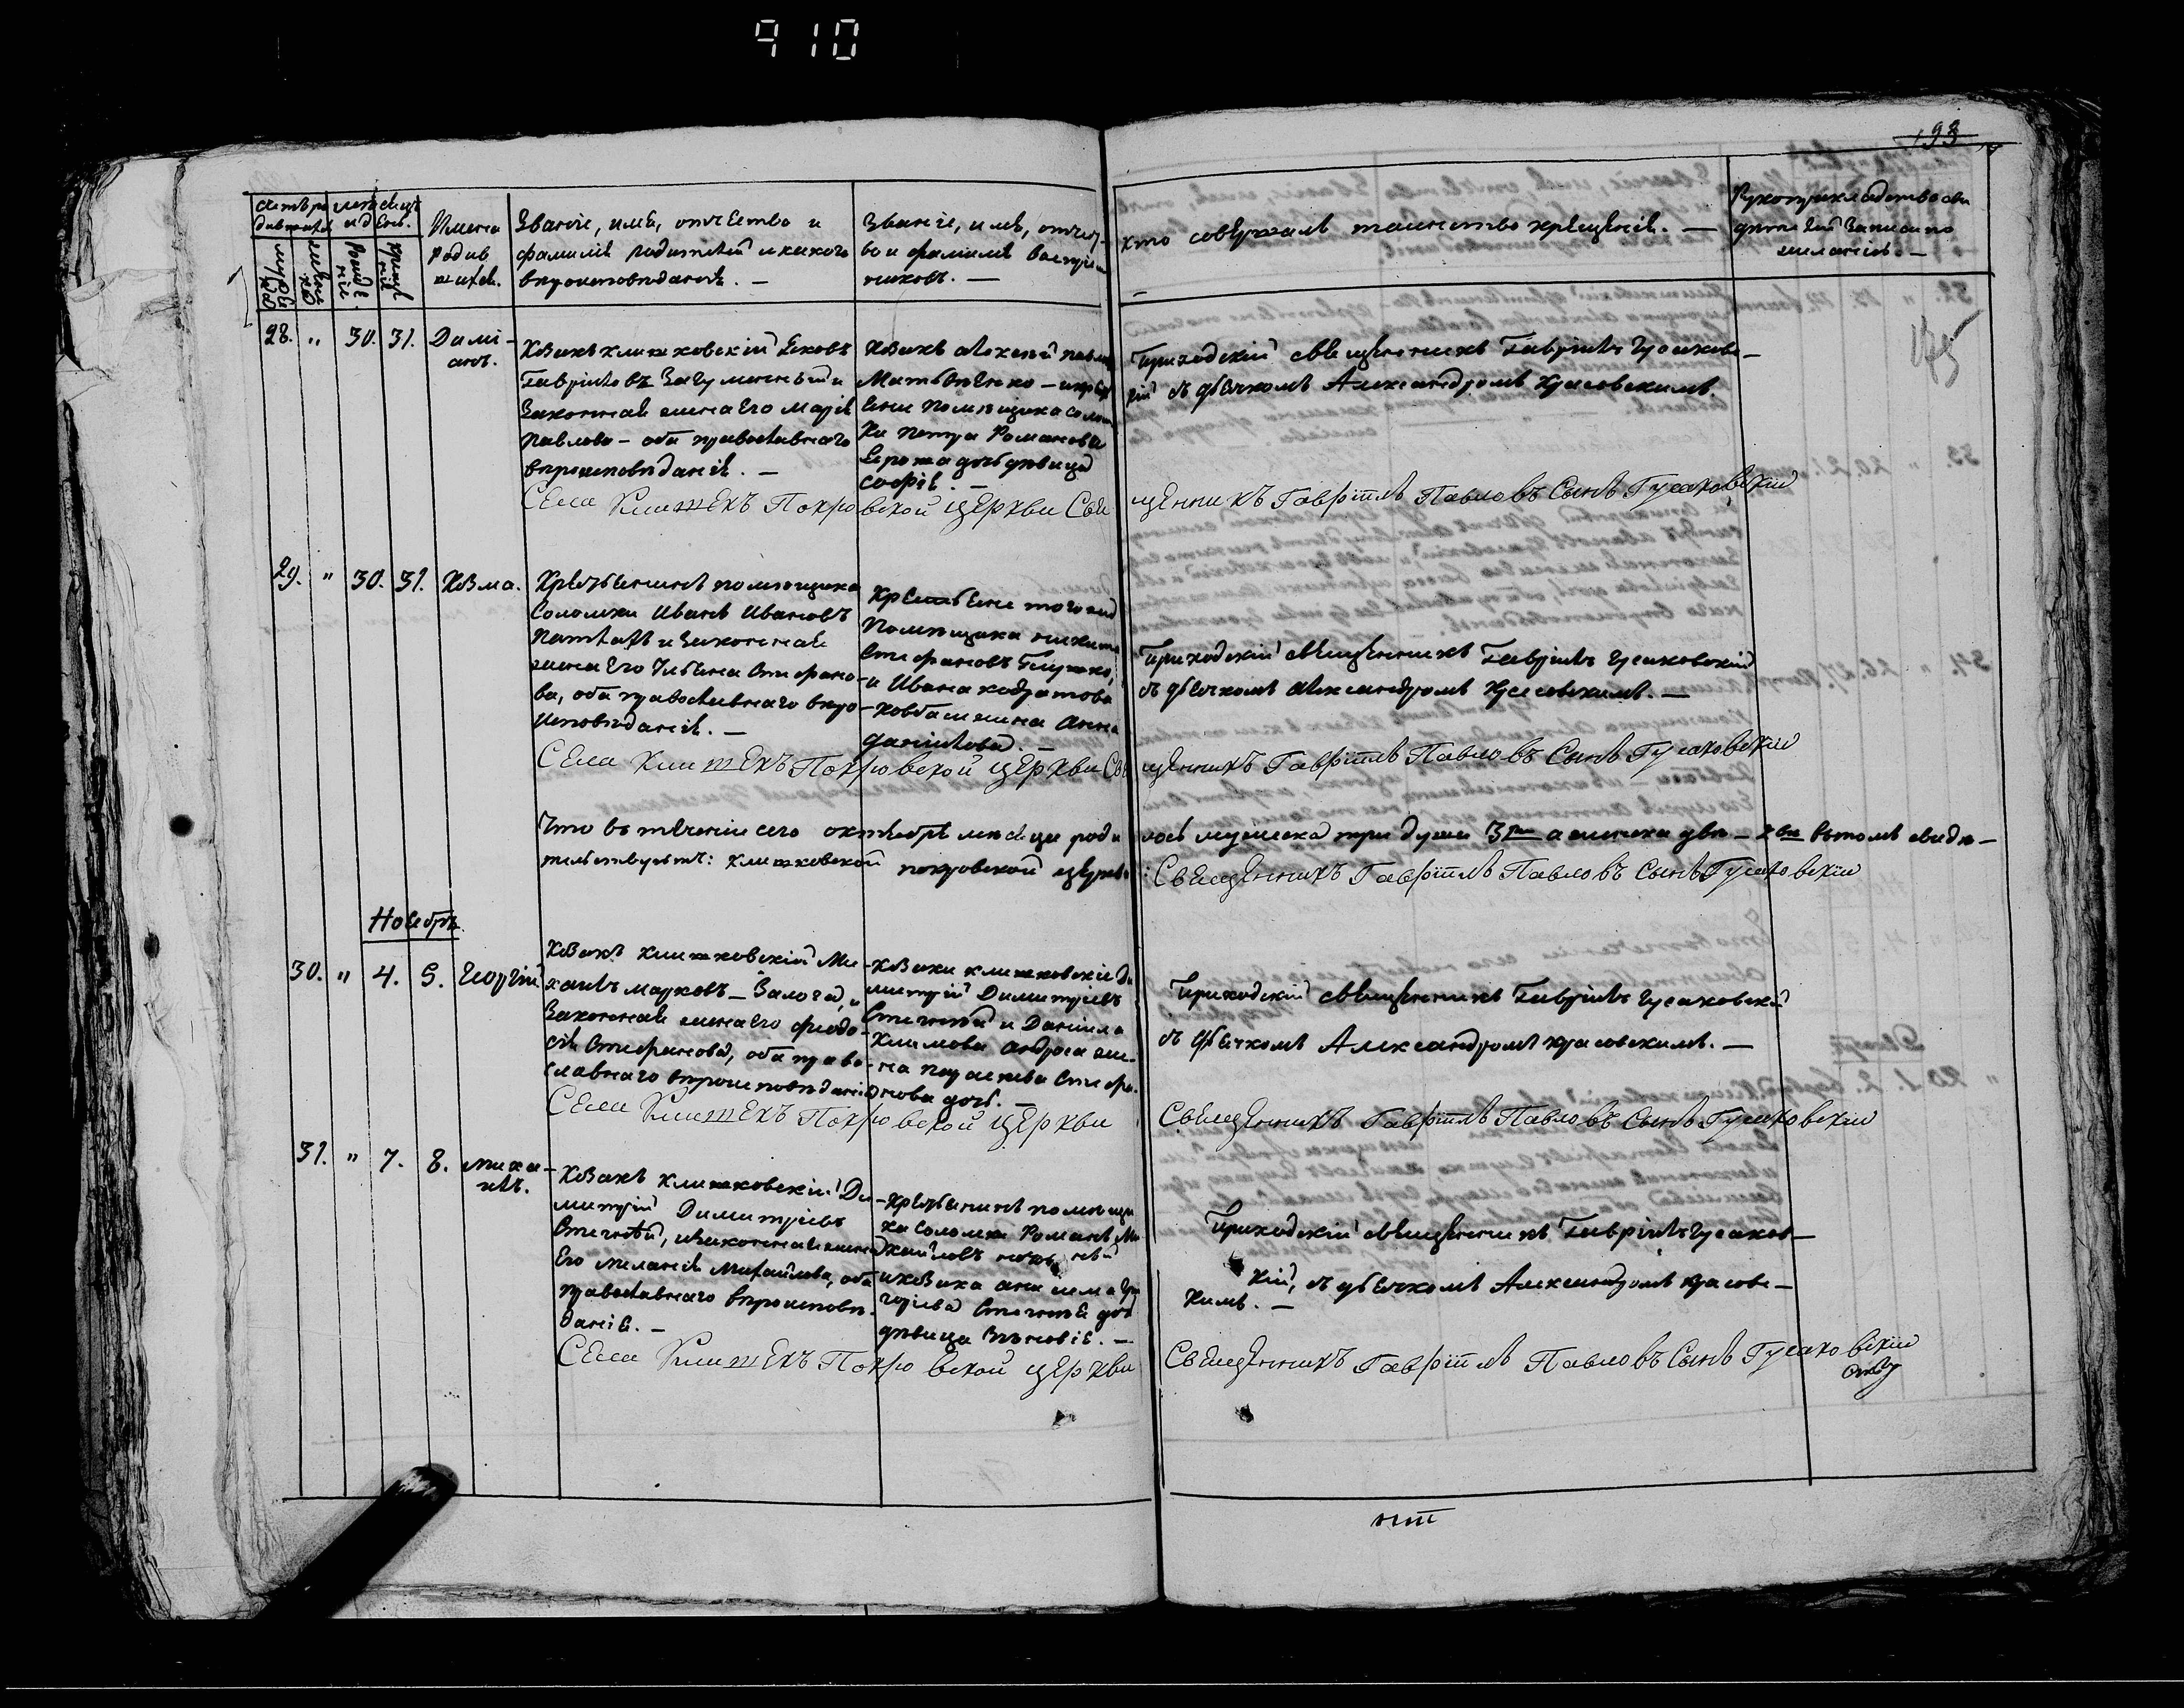 910
193
Счетъ ро
дившихся
мѣсяцъ
и день.
мужеска
женска
Рожде
нія
крещенія
Имена
родив
шихся.
Званіе, имя, отчество и
фамилія родителей и какого
вѣроисповѣданія. —
Званіе, имя, отчест-
во и фамилія воспріем
никовъ. —
кто совершалъ таинство крещенія. —
Рукоприкладство сви
дѣтелей записи по
желанію. —
175
28. " 30. 31. Дамі-
анъ.
Козакъ клишковскій Яковъ
Гавріиловъ Загуменный и
Законная жена его Марія
Павлова — оба православнаго
вѣроисповѣданія. —
Козакъ Алексей Павлов
Матвѣенко —
помѣщика Солом
ки Петра Романова
дочь дѣвица
Софія. —
Приходскій священникъ Гавріилъ Гусаковс—
кій съ дьячкомъ Александромъ Красовскимъ.
Села Клишекъ Покровской церкви Свя
щенникъ Гавріилъ Павловъ Сынъ Гусаковскій
29. " 30. 31. Козма.
Крестьянинъ помѣщика
Соломки Иванъ Ивановъ
и законная
жена его Ульяна Стефано-
ва, оба православнаго вѣро-
исповѣданія. —
Крестьяне того жъ
Помѣщика Никита
Стефановъ Глушко,
и Ивана Кодратова
Ковбаси жена Анна
Даніилова. —
Приходскій священникъ Гавріилъ Гусаковскій
съ дьячкомъ Александромъ Красовскимъ. —
Села Клишекъ Покровской церкви Свя
щенникъ Гавріилъ Павловъ Сынъ Гусаковскій
Что въ теченіи сего октября мѣсяца роди
лось мужеска три души 3 а женска двѣ — 2 вѣ въ томъ свидѣ—
тельствуетъ: клишковской покровской церкви
Священникъ Гавріилъ Павловъ Сынъ Гусаковскій
Ноябрь.
30. " 4. 5. Георгій
Козакъ клишковскій Ми-
хаилъ Марковъ — Залога, и
Законная жена его Феодо-
сія Стефанова, оба право-
славнаго вѣроисповѣданія
Козаки клишковскіе Ди
митрій Димитріевъ
Стегній и Даніила
Климова Андроса же-
на Параскева Стефа-
нова дочь. —
Приходскій священникъ Гавріилъ Гусаковскій
съ дьячкомъ Александромъ Красовскимъ. —
Села Клишекъ Покровской церкви
Священникъ Гавріилъ Павловъ Сынъ Гусаковскій
31. " 7. 8. Миха-
илъ.
Козакъ клишковскій Ди-
митрій Димитріевъ
Стегній, и законная жена
Его Меланія Михайлова, оба
православнаго вѣроисповѣ-
данія. —
Крестьянинъ помѣщи
ка Соломки Романъ Ми
хайловъ
и козака
Григорьева Стегнѣя дочь
дѣвица Зѣновія. —
Приходскій священникъ Гавріилъ Гусаков—
кій, съ дьячкомъ Александромъ Красовс—
кимъ. —
Села Клишекъ Покровской церкви
Священникъ Гавріилъ Павловъ Сынъ Гусаковскій